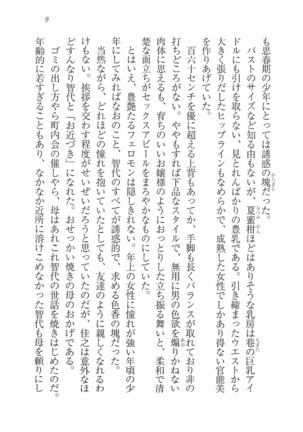 9
も思春期の少年にとっては誘惑の塊だった。
バストのサイズなど知る由もないが、夏蜜柑ほどはありそうな乳房は巷の巨乳アイ
ドルにも引けを取らない、見とれんばかりの豊乳である。引き締まったウエストから
大きく張りだしたヒップラインもなめらかで、成熟した女性でしかあり得ない官能美
を作りあげていた。
百六十センチを優に超える上背もあってか、手脚も長くバランスが取れており非の
打ちどころがない。ややもすれば下品なスタイルで、無用に男の色欲を煽りかねない
肉体にも思われるが、育ちのいいお嬢様のようにおっとりした立ち振る舞いと、柔和で清
楚な面立ちがセックスアピールをまろやかなものにしていた。
とはいえ、豊艶たるフェロモンは隠しきれない。年上の女性に憧れが強い年頃の少
年にしてみればなおのこと、智代のすべてが誘惑的で、求める色香の塊だった。
当然ながら、どれほどの憧れを抱いていたとしても、友達のように親しくなれるわ
けもない。挨拶を交わす程度がせいぜいだろうと思っていたのだが、佳之は意外なほ
どすんなり智代と「お近づき」になれた。おせっかい焼きの母のおかげである。
ゴミの出し方やら町内会の催しやら、母はあれこれ智代の世話を焼きはじめたのだ。
年齢的に若すぎることもあり、なかなか近所に溶けこめなかった智代も母を頼りにし